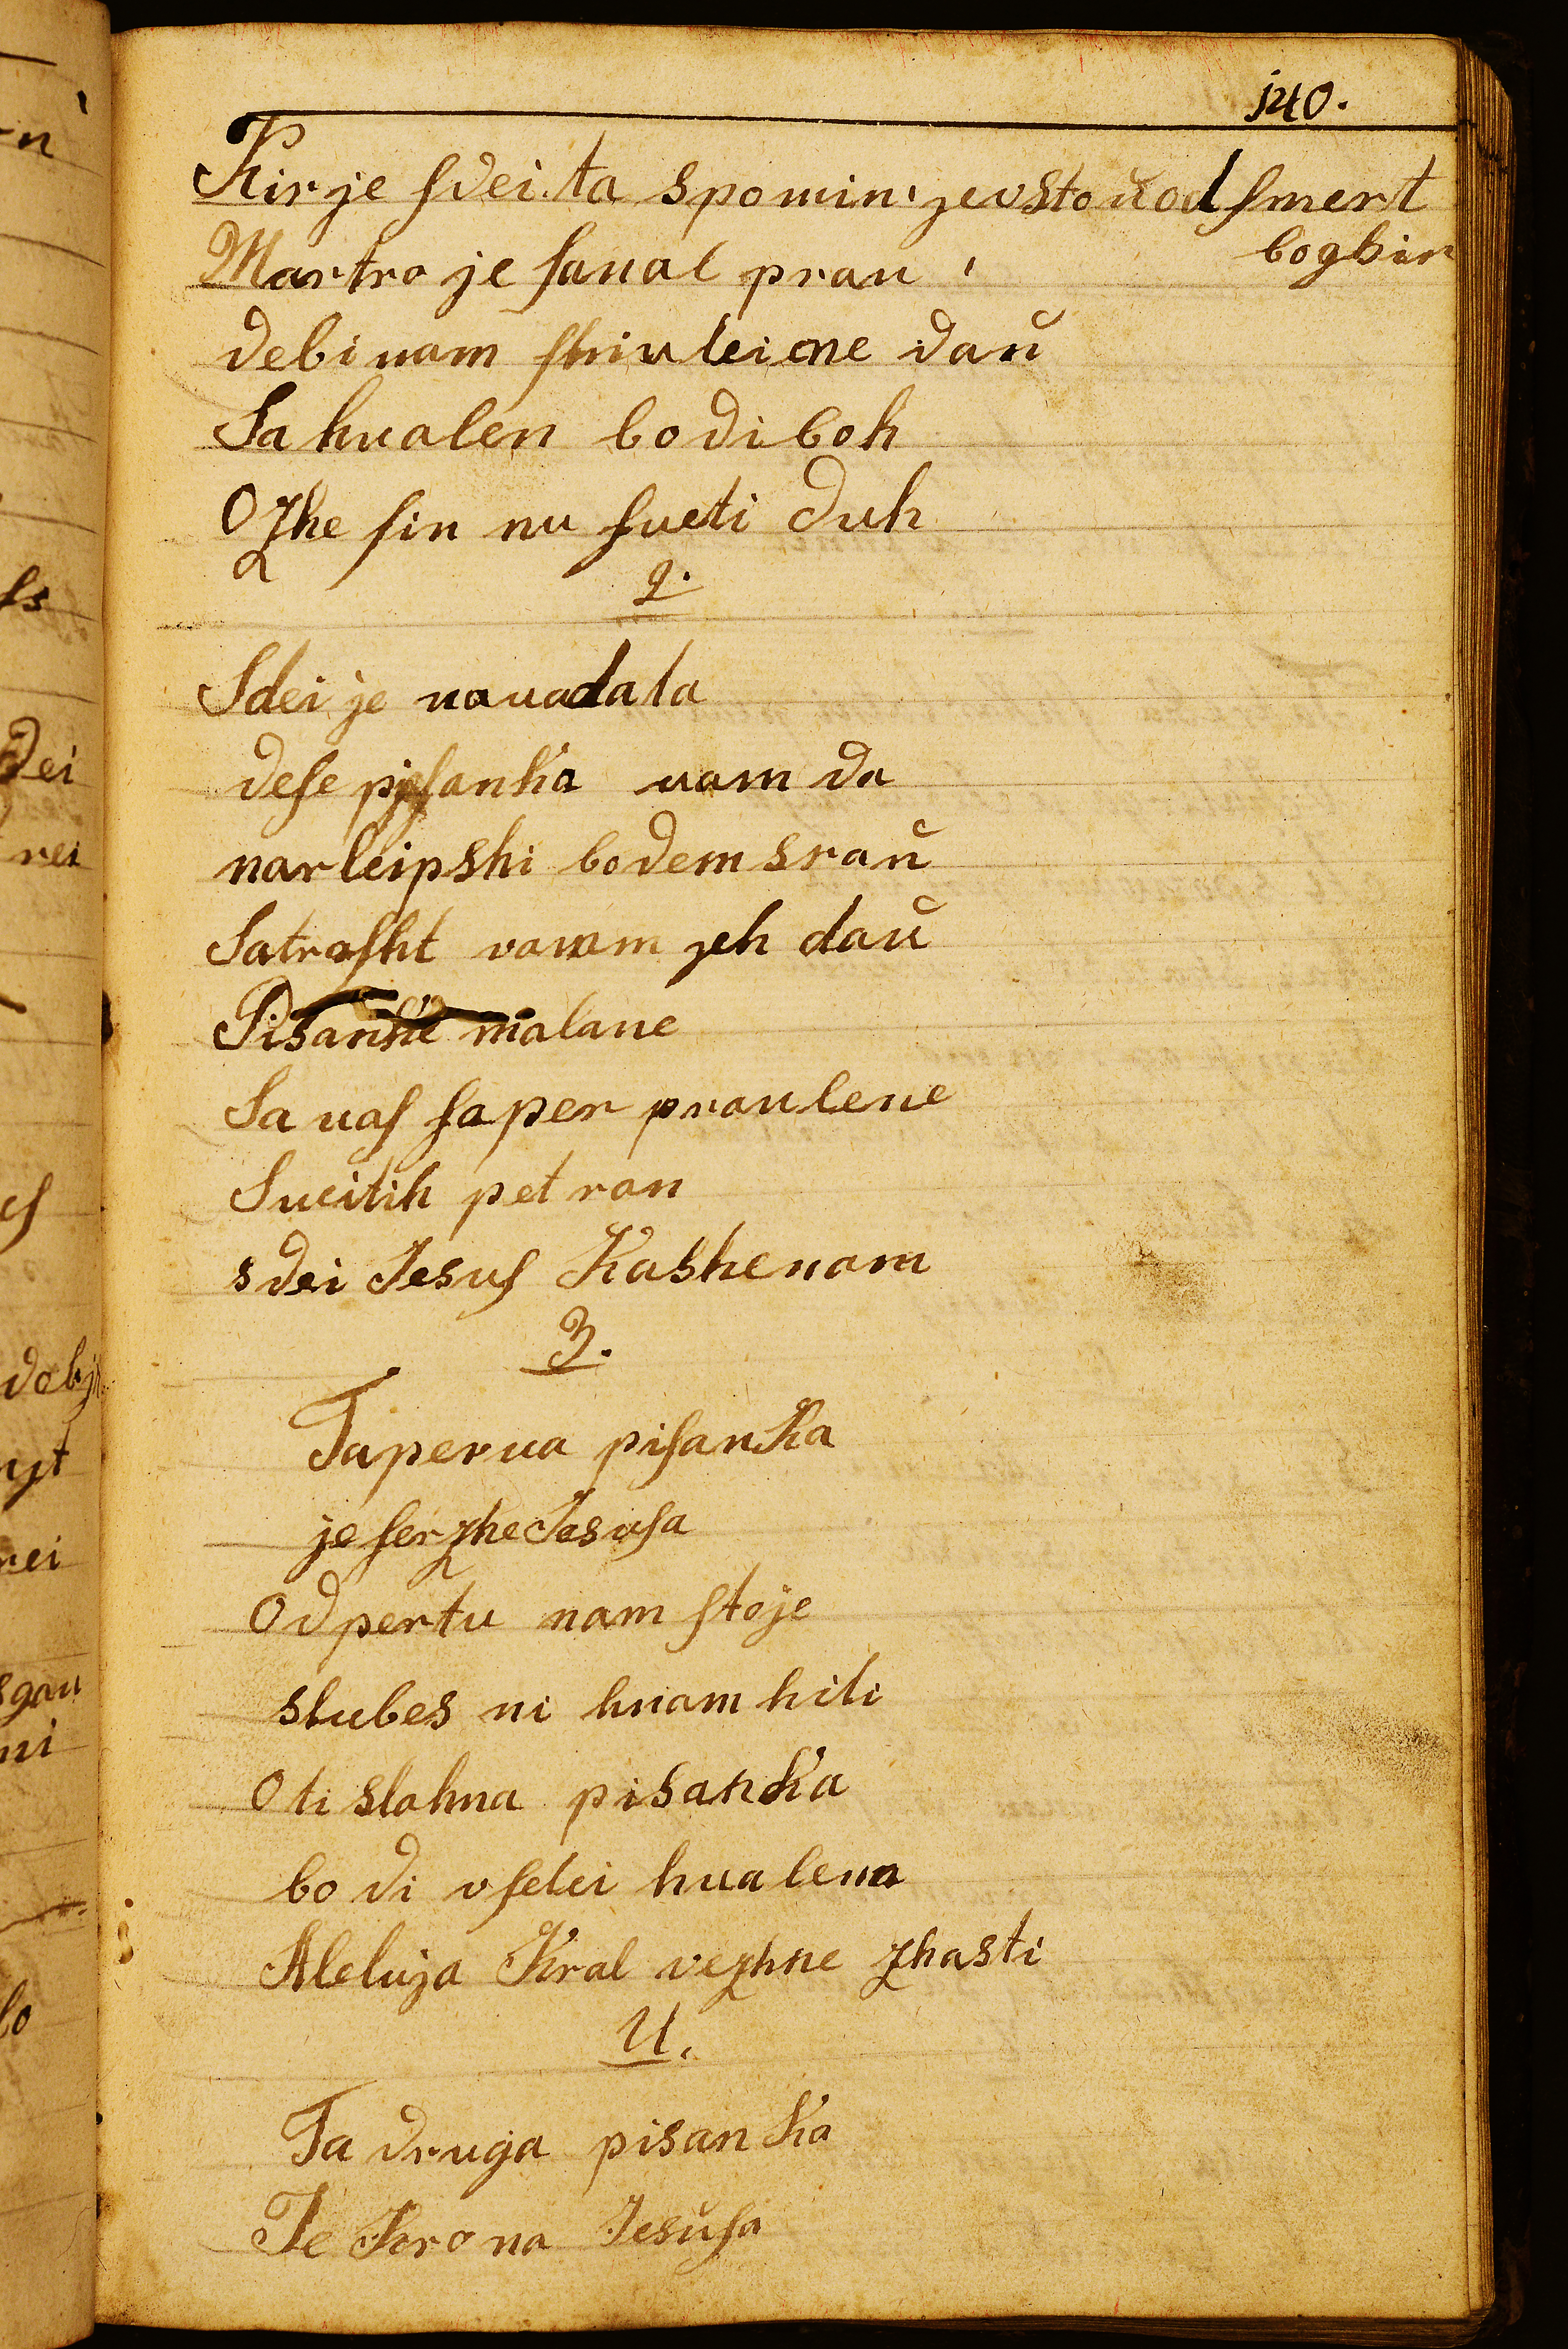 140.
Kirje sdei ta spomin jevstoŭ od smert
bogbir
Martro je sanas prau
debi nam shiuleine daŭ
Sa hualen bodi boh
Ozhe sin nu sueti duh
2.
Sdei je nauadala
dese pisanka uam da
narleipshi bodem sraŭ
Satrosht vamm jeh daŭ
Pisanke malane
Sa uas saper praulene
Sueitih pet ran
sdei Jesus Kashe nam
3.
Taperua pisanka
je serzhe Jesusa
Odpertu nam stoje
slubes ni hnam hiti
O ti slahna pisanka
bodi vselei hualena
Aleluja Kral vezhne zhasti
4.
Ta druga pisanka
Je Krona Jesŭsa